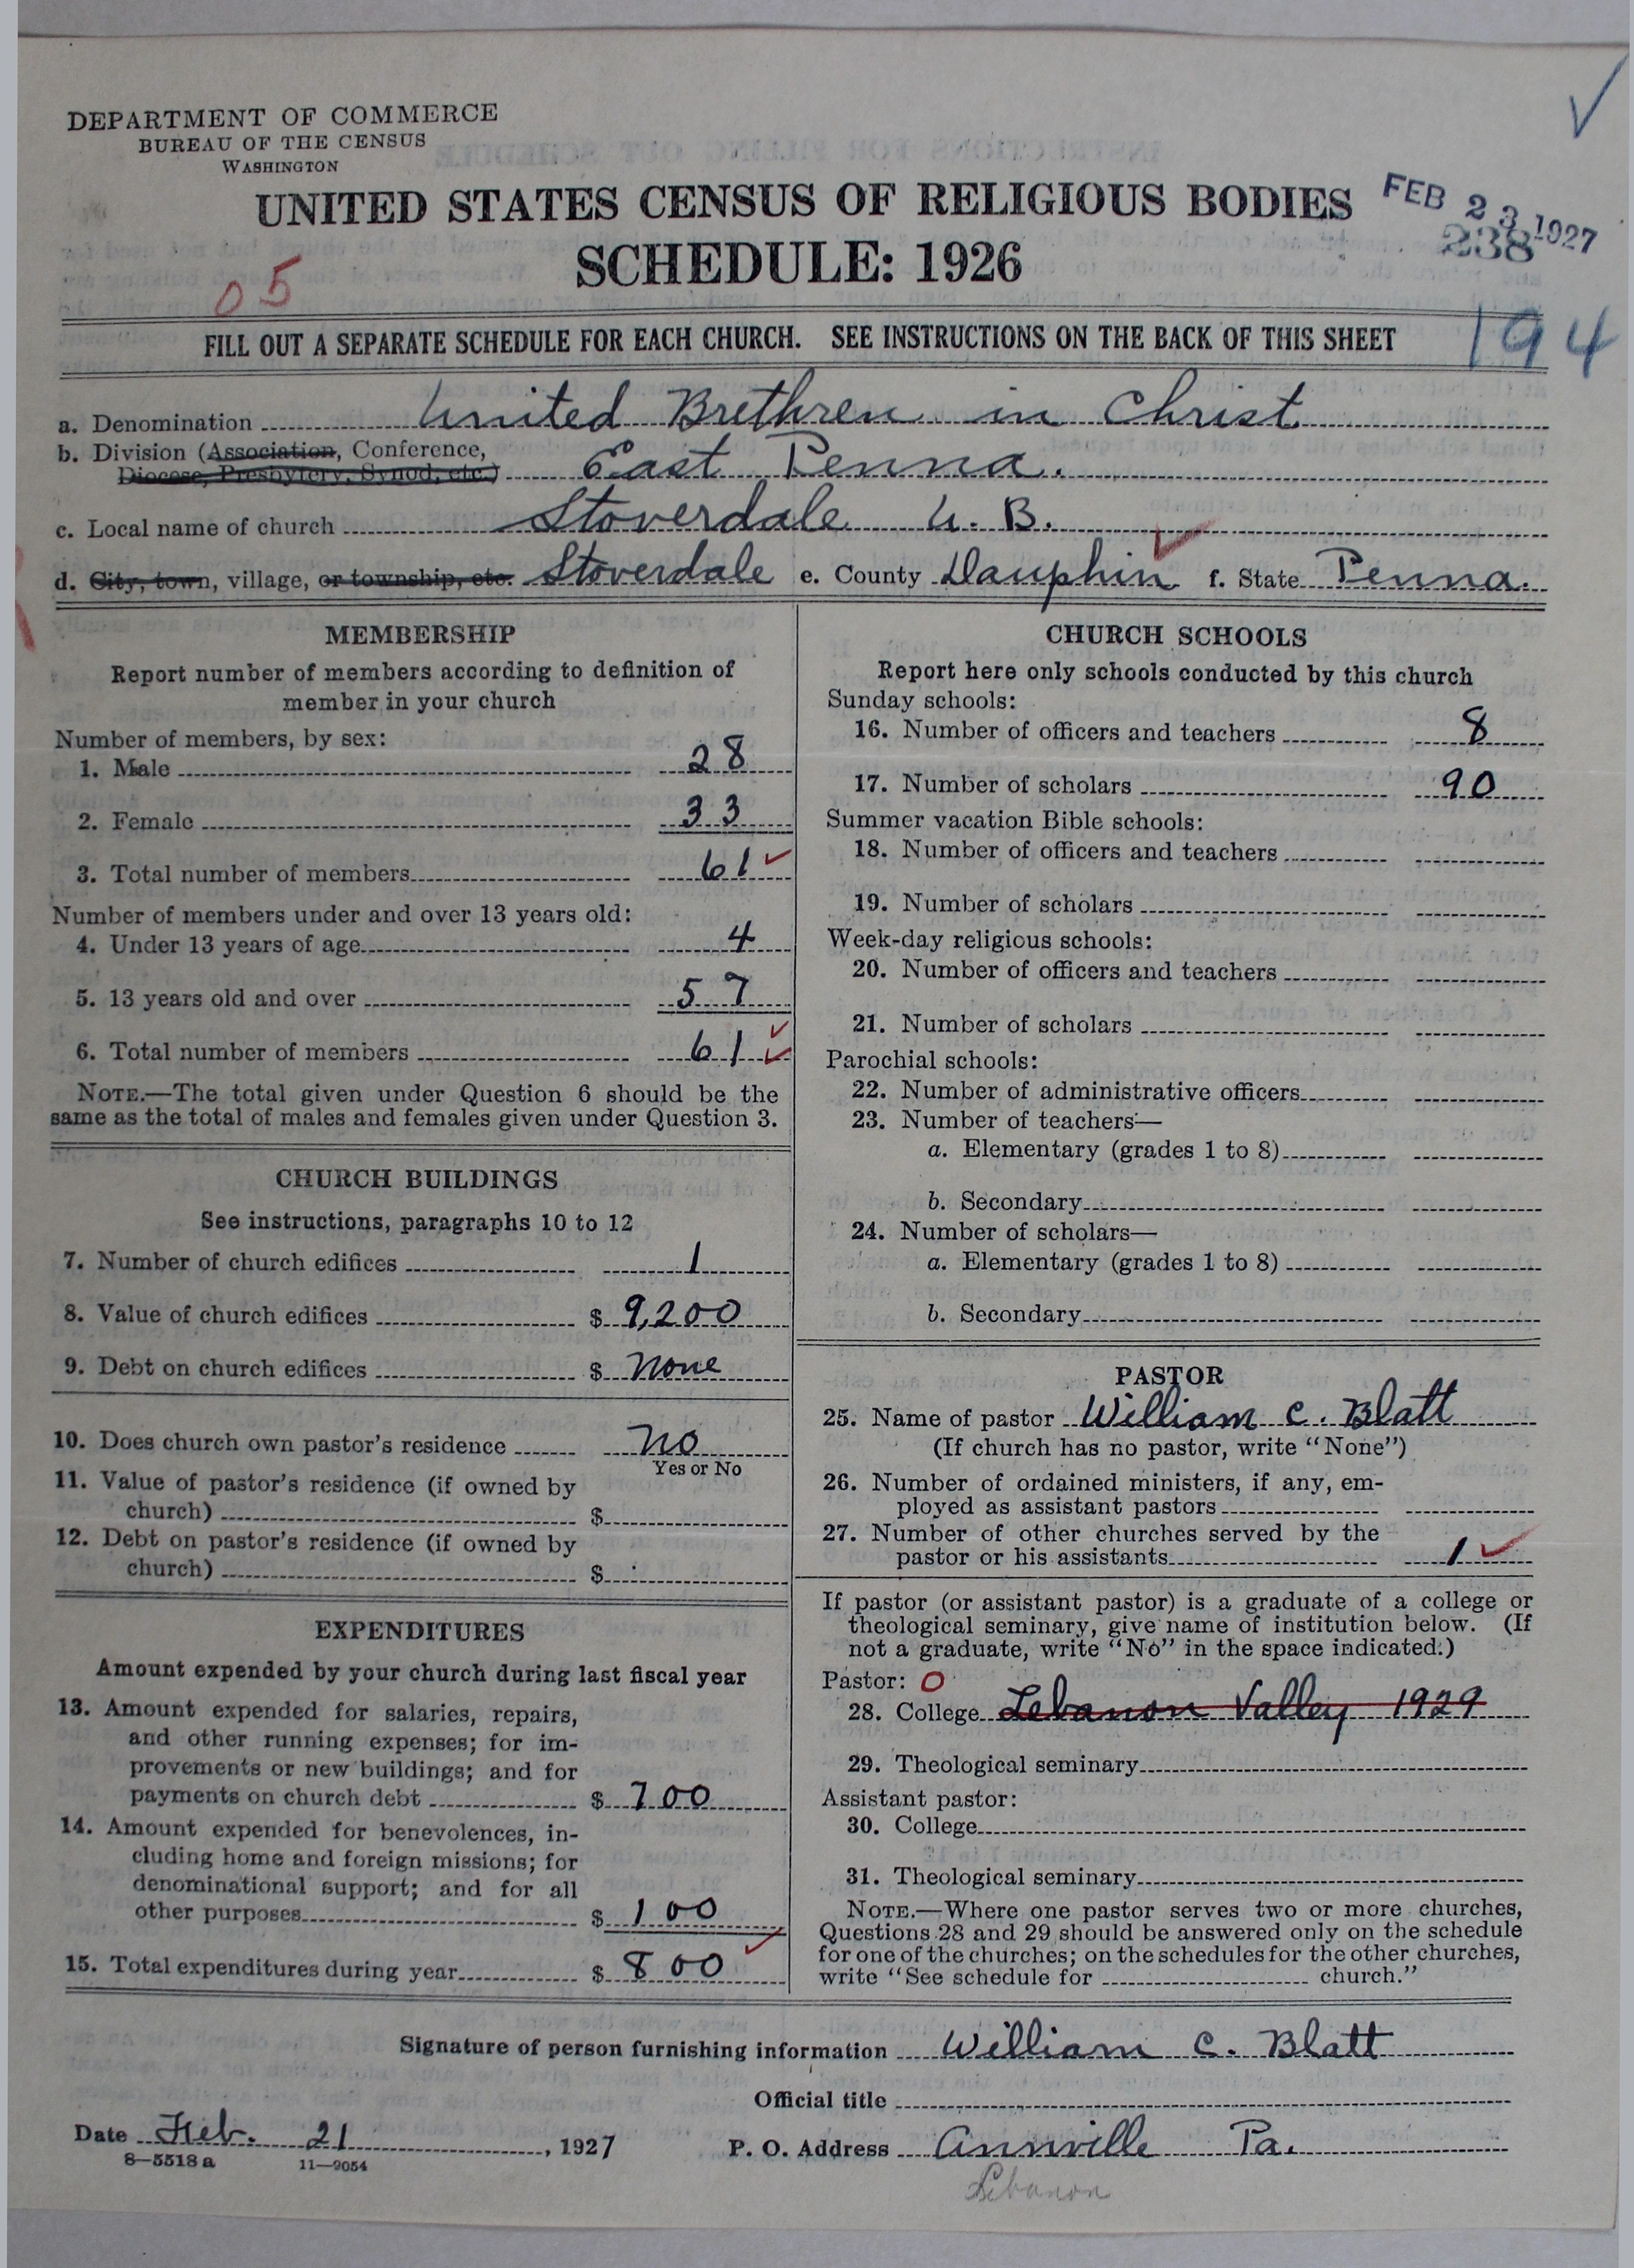 DEPARTMENT OF COMMERCE
BUREAU OF THE CENSUS
WASHINGTON
UNITED STATES CENSUS OF RELIGIOUS BODIES
SCHEDULE: 1926
FEB 23 1927
238
05
194
FILL OUT A SEPARATE SCHEDULE FOR EACH CHURCH. SEE INSTRUCTIONS ON THE BACK OF THIS SHEET
a. Denomination United Brethren in Christ
b. Division (Association, Conference,
Diocese, Presbytery, Synod, etc.) East Penna.
c. Local name of church Stoverdale U. B.
d. City, town, village, or township, etc. Stoverdale e. County Dauphin f. State Penna.
MEMBERSHIP
Report number of members according to definition of
member in your church
Number of members, by sex:
1. Male 28
2. Female 33
3. Total number of members 61
Number of members under and over 13 years old:
4. Under 13 years of age 4
5. 13 years old and over 57
6. Total number of members 61
NOTE.—The total given under Question 6 should be the
same as the total of males and females given under Question 3.
CHURCH BUILDINGS
See instructions, paragraphs 10 to 12
7. Number of church edifices 1
8. Value of church edifices $ 9,200
9. Debt on church edifices $ None
10. Does church own pastor's residence No
Yes or No
11. Value of pastor's residence (if owned by
church) $
12. Debt on pastor's residence (if owned by
church) $
EXPENDITURES
Amount expended by your church during last fiscal year
13. Amount expended for salaries, repairs,
and other running expenses; for im-
provements or new buildings; and for
payments on church debt $ 700
14. Amount expended for benevolences, in-
cluding home and foreign missions; for
denominational support; and for all
other purposes $ 100
15. Total expenditures during year $ 800
CHURCH SCHOOLS
Report here only schools conducted by this church
Sunday schools:
16. Number of officers and teachers 8
17. Number of scholars 90
Summer vacation Bible schools:
18. Number of officers and teachers
19. Number of scholars
Week-day religious schools:
20. Number of officers and teachers
21. Number of scholars
Parochial schools:
22. Number of administrative officers
23. Number of teachers—
a. Elementary (grades 1 to 8)
b. Secondary
24. Number of scholars—
a. Elementary (grades 1 to 8)
b. Secondary
PASTOR
25. Name of pastor William C. Blatt
(If church has no pastor, write "None")
26. Number of ordained ministers, if any, em-
ployed as assistant pastors
27. Number of other churches served by the
pastor or his assistants 1
If pastor (or assistant pastor) is a graduate of a college or
theological seminary, give name of institution below. (If
not a graduate, write "No" in the space indicated.)
Pastor: O
28. College Lebanon Valley 1929
29. Theological seminary
Assistant pastor:
30. College
31. Theological seminary
NOTE.—Where one pastor serves two or more churches,
Questions 28 and 29 should be answered only on the schedule
for one of the churches; on the schedules for the other churches,
write "See schedule for church."
Signature of person furnishing information William C. Blatt
Official title
Date Feb. 21, 1927
P. O. Address Annville Pa.
8—5518 a 11—9054
Lebanon